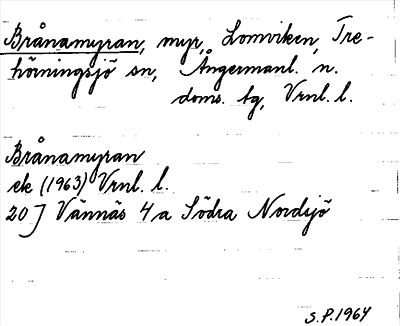 Brånamyran, myr, Lomviken, Tre-
hörningsjö sn, Ångermanl. n.
doms. tg, Vrnl. l.
Brånamyran
ek (1963) Vrnl. l.
20 J Vännäs 4a Södra Nordsjö
S.P. 1964